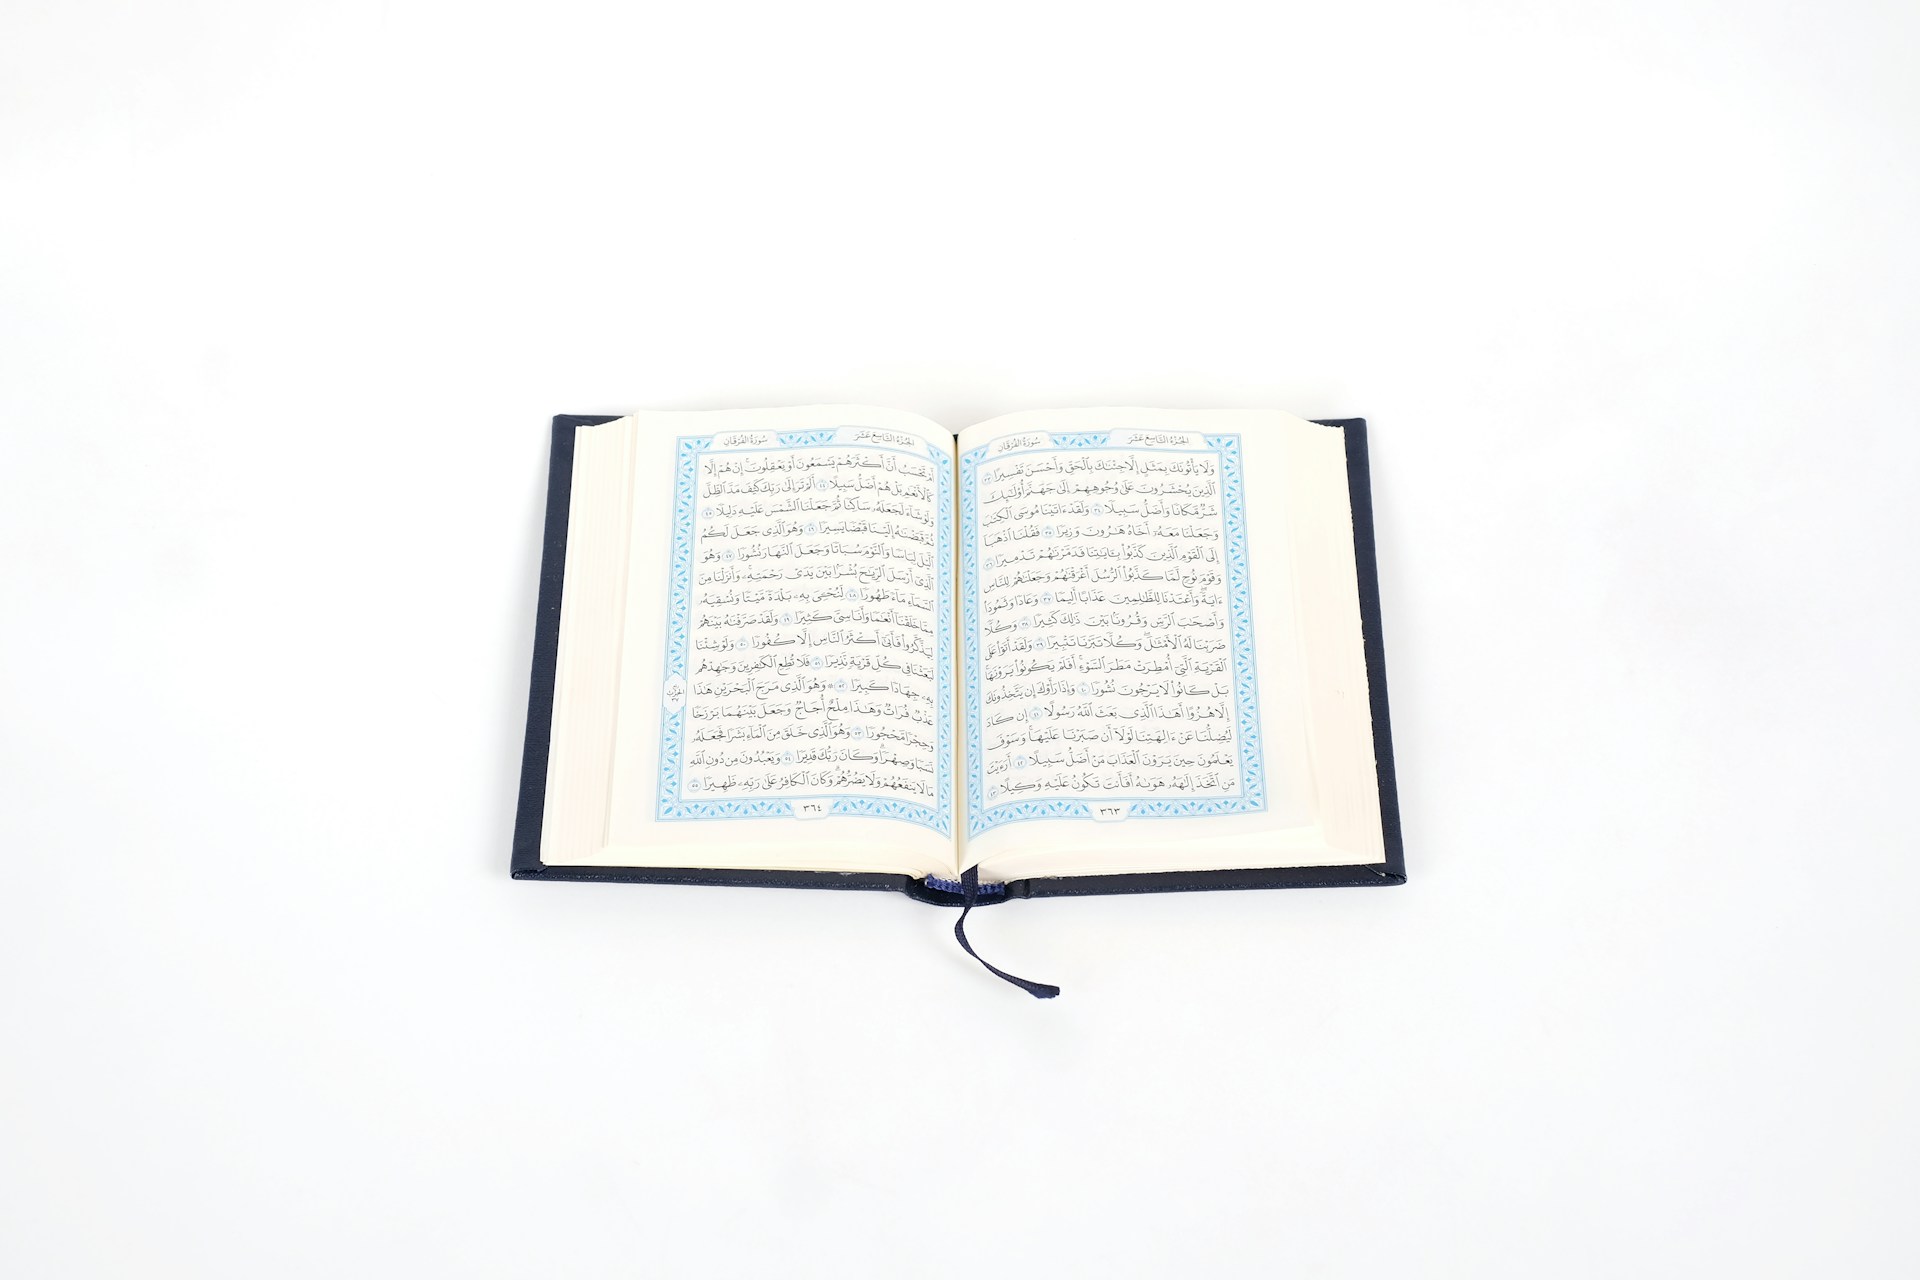 سُورَةُ الفُرْقَانِ
الجُزْءُ التَّاسِعَ عَشَرَ
وَلَا يَأْتُونَكَ بِمَثَلٍ إِلَّا جِئْنَٰكَ بِٱلْحَقِّ وَأَحْسَنَ تَفْسِيرًا ٣٣
ٱلَّذِينَ يُحْشَرُونَ عَلَىٰ وُجُوهِهِمْ إِلَىٰ جَهَنَّمَ أُو۟لَٰٓئِكَ
شَرٌّ مَّكَانًا وَأَضَلُّ سَبِيلًا ٣٤ وَلَقَدْ ءَاتَيْنَا مُوسَى ٱلْكِتَٰبَ
وَجَعَلْنَا مَعَهُۥٓ أَخَاهُ هَٰرُونَ وَزِيرًا ٣٥ فَقُلْنَا ٱذْهَبَآ
إِلَى ٱلْقَوْمِ ٱلَّذِينَ كَذَّبُوا۟ بِـَٔايَٰتِنَا فَدَمَّرْنَٰهُمْ تَدْمِيرًا ٣٦
وَقَوْمَ نُوحٍ لَّمَّا كَذَّبُوا۟ ٱلرُّسُلَ أَغْرَقْنَٰهُمْ وَجَعَلْنَٰهُمْ لِلنَّاسِ
ءَايَةً وَأَعْتَدْنَا لِلظَّٰلِمِينَ عَذَابًا أَلِيمًا ٣٧ وَعَادًا وَثَمُودَا۟
وَأَصْحَٰبَ ٱلرَّسِّ وَقُرُونًۢا بَيْنَ ذَٰلِكَ كَثِيرًا ٣٨ وَكُلًّا
ضَرَبْنَا لَهُ ٱلْأَمْثَٰلَ وَكُلًّا تَبَّرْنَا تَتْبِيرًا ٣٩ وَلَقَدْ أَتَوْا۟ عَلَى
ٱلْقَرْيَةِ ٱلَّتِىٓ أُمْطِرَتْ مَطَرَ ٱلسَّوْءِ أَفَلَمْ يَكُونُوا۟ يَرَوْنَهَا
بَلْ كَانُوا۟ لَا يَرْجُونَ نُشُورًا ٤٠ وَإِذَا رَأَوْكَ إِن يَتَّخِذُونَكَ
إِلَّا هُزُوًا أَهَٰذَا ٱلَّذِى بَعَثَ ٱللَّهُ رَسُولًا ٤١ إِن كَادَ
لَيُضِلُّنَا عَنْ ءَالِهَتِنَا لَوْلَآ أَن صَبَرْنَا عَلَيْهَا وَسَوْفَ
يَعْلَمُونَ حِينَ يَرَوْنَ ٱلْعَذَابَ مَنْ أَضَلُّ سَبِيلًا ٤٢ أَرَءَيْتَ
مَنِ ٱتَّخَذَ إِلَٰهَهُۥ هَوَىٰهُ أَفَأَنتَ تَكُونُ عَلَيْهِ وَكِيلًا ٤٣
٣٦٣
الجُزْءُ التَّاسِعَ عَشَرَ
سُورَةُ الفُرْقَانِ
أَمْ تَحْسَبُ أَنَّ أَكْثَرَهُمْ يَسْمَعُونَ أَوْ يَعْقِلُونَ إِنْ هُمْ إِلَّا
كَٱلْأَنْعَٰمِ بَلْ هُمْ أَضَلُّ سَبِيلًا ٤٤ أَلَمْ تَرَ إِلَىٰ رَبِّكَ كَيْفَ مَدَّ ٱلظِّلَّ
وَلَوْ شَآءَ لَجَعَلَهُۥ سَاكِنًا ثُمَّ جَعَلْنَا ٱلشَّمْسَ عَلَيْهِ دَلِيلًا ٤٥
ثُمَّ قَبَضْنَٰهُ إِلَيْنَا قَبْضًا يَسِيرًا ٤٦ وَهُوَ ٱلَّذِى جَعَلَ لَكُمُ
ٱلَّيْلَ لِبَاسًا وَٱلنَّوْمَ سُبَاتًا وَجَعَلَ ٱلنَّهَارَ نُشُورًا ٤٧ وَهُوَ
ٱلَّذِىٓ أَرْسَلَ ٱلرِّيَٰحَ بُشْرًۢا بَيْنَ يَدَىْ رَحْمَتِهِۦ وَأَنزَلْنَا مِنَ
ٱلسَّمَآءِ مَآءً طَهُورًا ٤٨ لِّنُحْـِۧىَ بِهِۦ بَلْدَةً مَّيْتًا وَنُسْقِيَهُۥ
مِمَّا خَلَقْنَآ أَنْعَٰمًا وَأَنَاسِىَّ كَثِيرًا ٤٩ وَلَقَدْ صَرَّفْنَٰهُ بَيْنَهُمْ
لِيَذَّكَّرُوا۟ فَأَبَىٰٓ أَكْثَرُ ٱلنَّاسِ إِلَّا كُفُورًا ٥٠ وَلَوْ شِئْنَا
لَبَعَثْنَا فِى كُلِّ قَرْيَةٍ نَّذِيرًا ٥١ فَلَا تُطِعِ ٱلْكَٰفِرِينَ وَجَٰهِدْهُم
بِهِۦ جِهَادًا كَبِيرًا ٥٢ ۞ وَهُوَ ٱلَّذِى مَرَجَ ٱلْبَحْرَيْنِ هَٰذَا
عَذْبٌ فُرَاتٌ وَهَٰذَا مِلْحٌ أُجَاجٌ وَجَعَلَ بَيْنَهُمَا بَرْزَخًا
وَحِجْرًا مَّحْجُورًا ٥٣ وَهُوَ ٱلَّذِى خَلَقَ مِنَ ٱلْمَآءِ بَشَرًا فَجَعَلَهُۥ
نَسَبًا وَصِهْرًا وَكَانَ رَبُّكَ قَدِيرًا ٥٤ وَيَعْبُدُونَ مِن دُونِ ٱللَّهِ
مَا لَا يَنفَعُهُمْ وَلَا يَضُرُّهُمْ وَكَانَ ٱلْكَافِرُ عَلَىٰ رَبِّهِۦ ظَهِيرًا ٥٥
٣٦٤